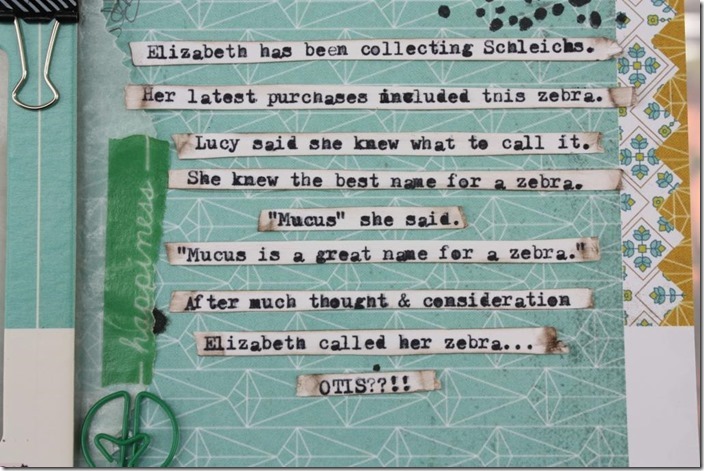 Elizabeth has been collecting Schleichs.
Her latest purchases included this zebra.
Lucy said she knew what to call it.
She knew the best name for a zebra.
"Mucus" she said.
"Mucus is a great name for a zebra."
After much thought & consideration
Elizabeth called her zebra...
OTIS??!!
happiness